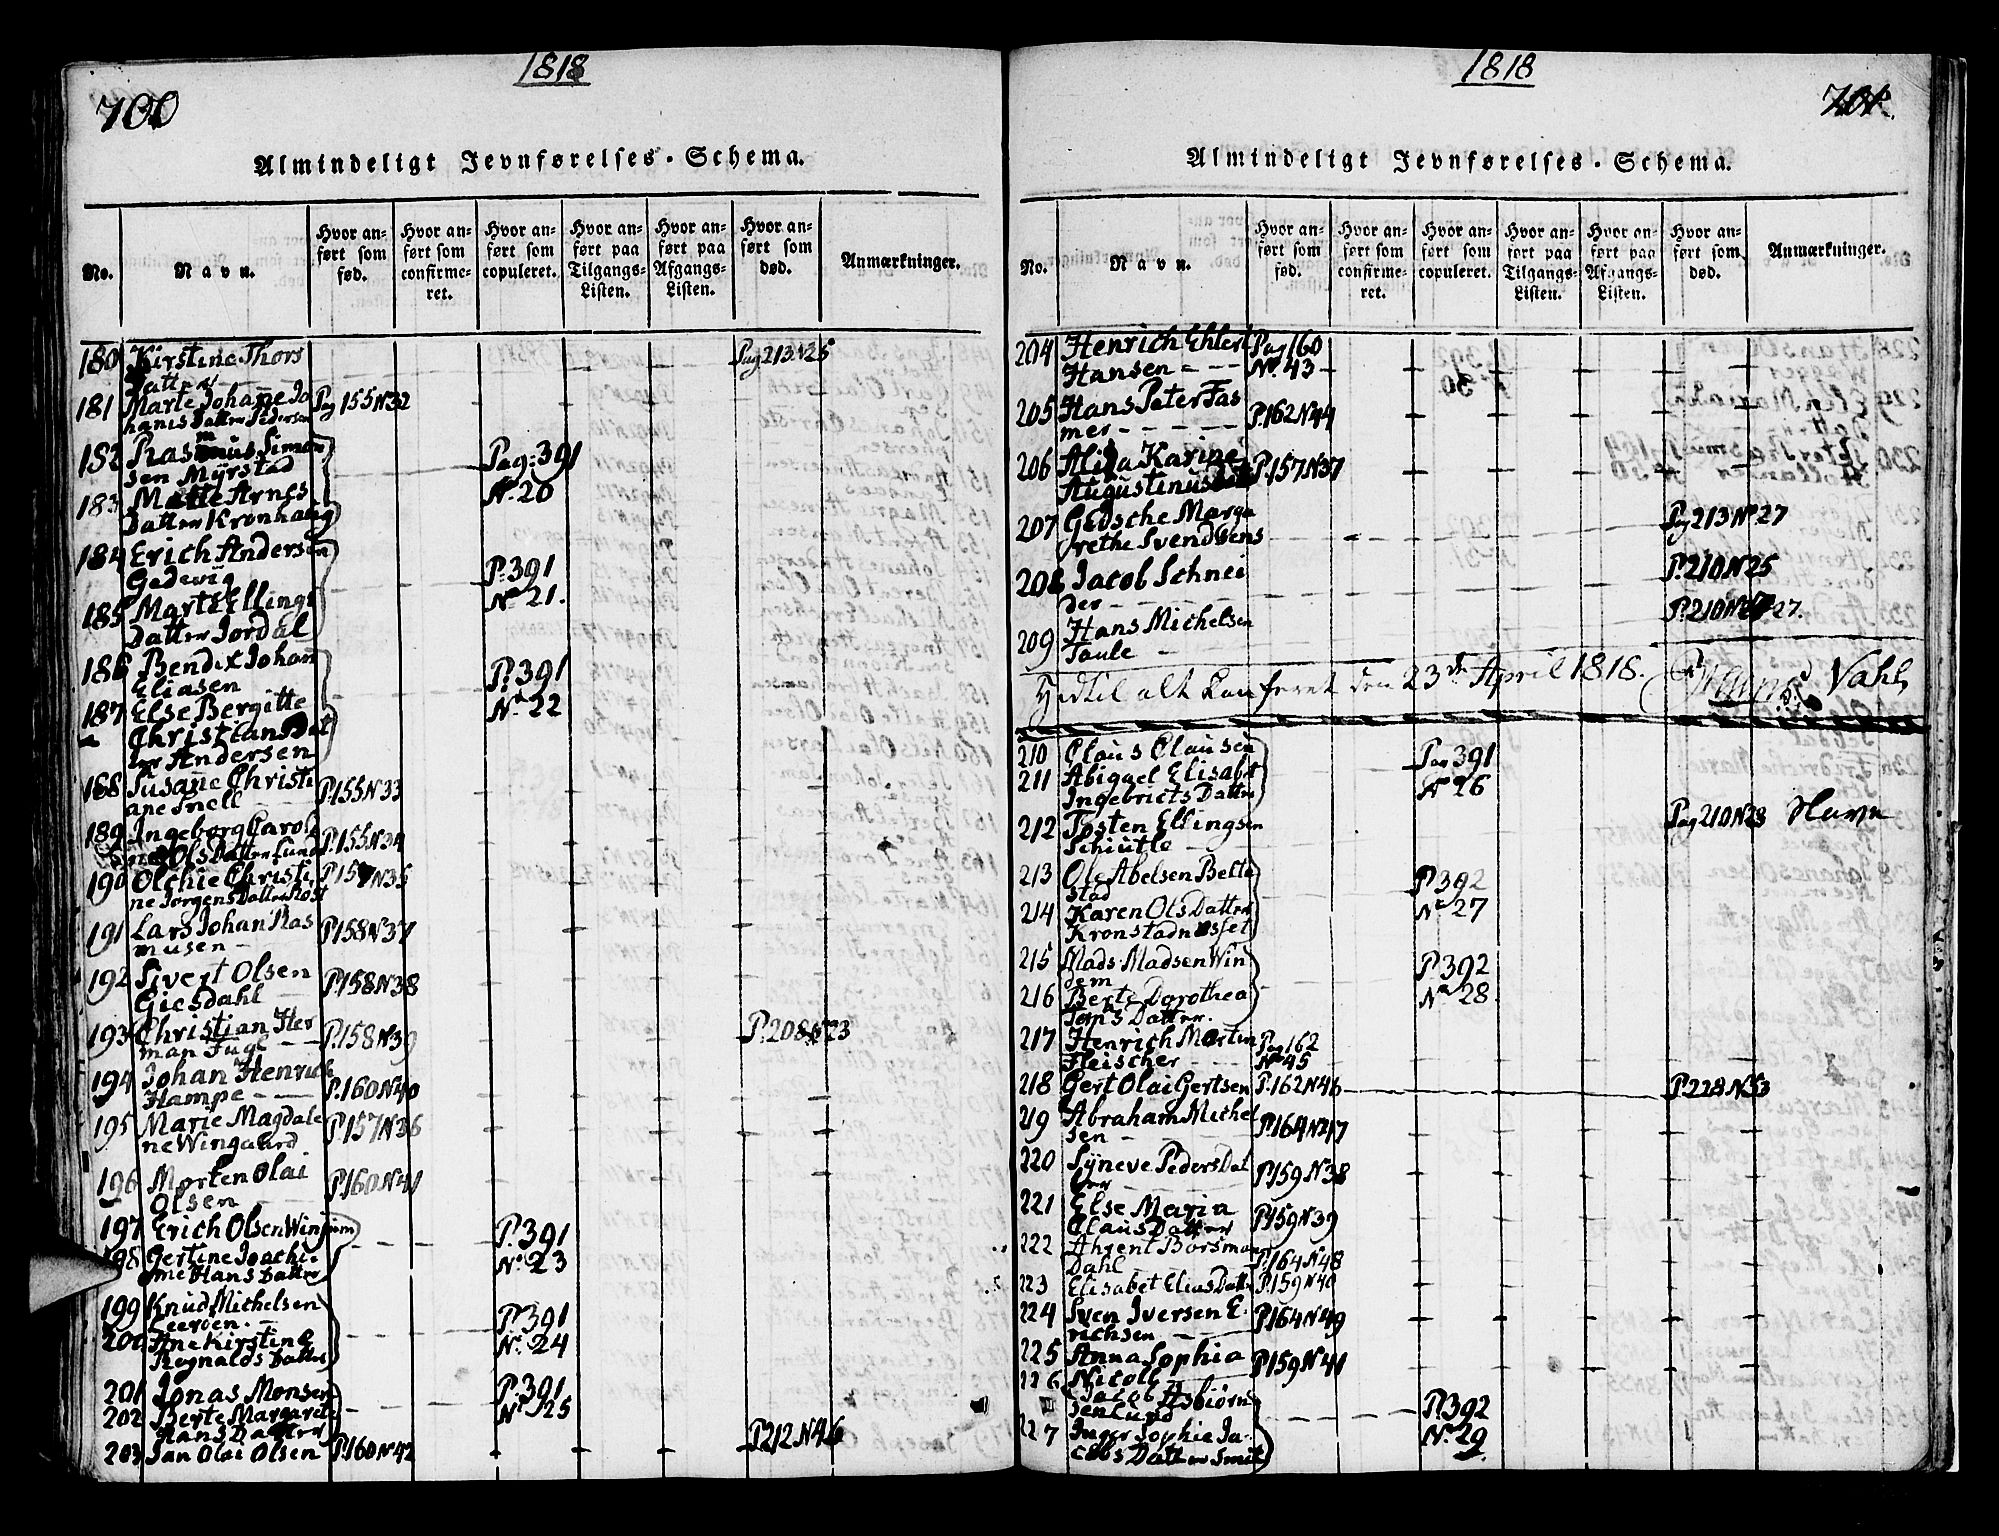 1818
700
Almindeligt Jevnførelses-Schema.
No.
Navn.
Hvor anført som fød.
Hvor anført som confirmeret.
Hvor anført som copuleret.
Hvor anført paa Tilgangs-Listen.
Hvor anført paa Afgangs-Listen.
Hvor anført som død.
Anmærkninger.
180 Kirstine Thors Pag 213 N 25
Datter
181 Marte Johanne Jo Pag 155 N 32
hanis Datter Pedersen
182 Rasmus Simon Pag: 391
sen Myrstad
183 Mette Arnes N. 20
Datter Kronhaug
184 Erich Andersen P. 391
Gedevig
185 Marte Ellings N. 21.
Datter Jordal
186 Bendix Johan P. 391
Eliasen
187 Else Bergitte N. 22
Christians Dat
ter Andersen
188 Susane Christi P. 155 N 33
ane Snell
189 Ingeborg Carol P. 155 N 34
ine Ols Datter Lund
190 Olchie Christi P 157 N 35
ne Jørgens Datter Rost
191 Lars Johan Ras P 158 N 37
musen
192 Sivert Olsen P 158 N 38
Giesdahl
193 Christian Her P. 158 N 39 P. 208 N 23
man Fugl
194 Johan Henrich P. 160 N 40
Hampe
195 Marie Magdale P 157 N 36
ne Wingaard
196 Morten Olai P. 160 N 41
Olsen
197 Erich Olsen Winjum P. 391
198 Gertine Joachi- N. 23
me Hans Datter
199 Knud Michelsen P. 391
Leeroen.
200 Ane Kirstine N. 24
Reynalds Datter
201 Jonas Monsen P. 391
202 Berte Margarete N. 25
Hans Datter
203 Jan Olai Olsen P. 160 N. 42 P 212 N 46
1818
701
Almindeligt Jevnførelses-Schema.
No.
Navn.
Hvor anført som fød.
Hvor anført som confirmeret.
Hvor anført som copuleret.
Hvor anført paa Tilgangs-Listen.
Hvor anført paa Afgangs-Listen.
Hvor anført som død.
Anmærkninger.
204 Henrich Ehlert Pag 160
Hansen N. 43
205 Hans Peter Fas P. 162 N 44
mer
206 Karine P. 157 N 37
Augustinus
207 Gedsche Marga Pag 213 N 27
rethe Svendsens
208 Jacob Schnei P. 210 N 25
der
209 Hans Michelsen P. 210 27.
Taule
Hidtil alt Confereret den 23de April 1818. Vahl
210 Claus Clausen Pag 391
211 Abigael Elisabt N 26
Ingebricts Datter
212 Tosten Ellingsen Pag 210 N 28
Schiutle
213 Ole Abelsen Betta P 392
stad
214 Karen Ols Datter N. 27
Kronstadnesset
215 Mads Madsen Win P. 392
dem
216 Berte Dorothea N. 28.
Datter.
217 Henrich Martin Pag 162
Fleischer N. 45
218 Gert Olai Gertsen P. 162 N 46 P. 228 N 53
219 Abraham Michel P. 164 N 47
sen
220 Syneve Peders Dat P. 159 N 38
ter
221 Else Maria P. 159 N 39
Claus Datter
222 Ahrent Borsman
Dahl P. 164 N 48
223 Elisabet Elias Datter P. 159 N 40
224 Sven Iversen E- P. 164 N 49
richsen
225 Anna Sophia P. 159 N 41
Nicoll
226 Jacob Asbiørn P. 392
sen Lund
227 Inger Sophie Ja- N. 29
cobs Datter Smit